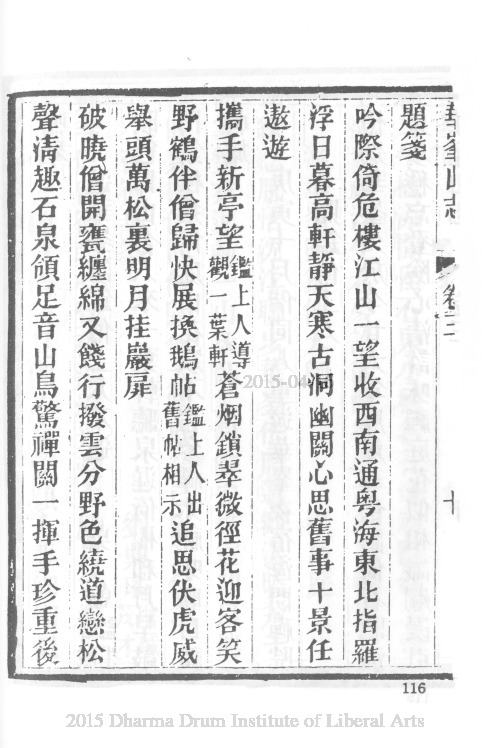 華峯山志 卷三 十
題箋
吟際倚危樓江山一望收西南通粤海東北指羅
浮日暮高軒靜天寒古洞幽關心思舊事十景任
遨遊
攜手新亭望鑑上人導觀一葉軒蒼烟鎖翠微徑花迎客笑
野鶴伴僧歸快展換鵝帖鑑上人出舊帖相示追思伏虎威
舉頭萬松裏明月挂巖扉
破曉僧開甕纏綿又餞行撥雲分野色繞道戀松
聲清趣石泉領足音山鳥驚禪關一揮手珍重後
116
2015 Dharma Drum Institute of Liberal Arts